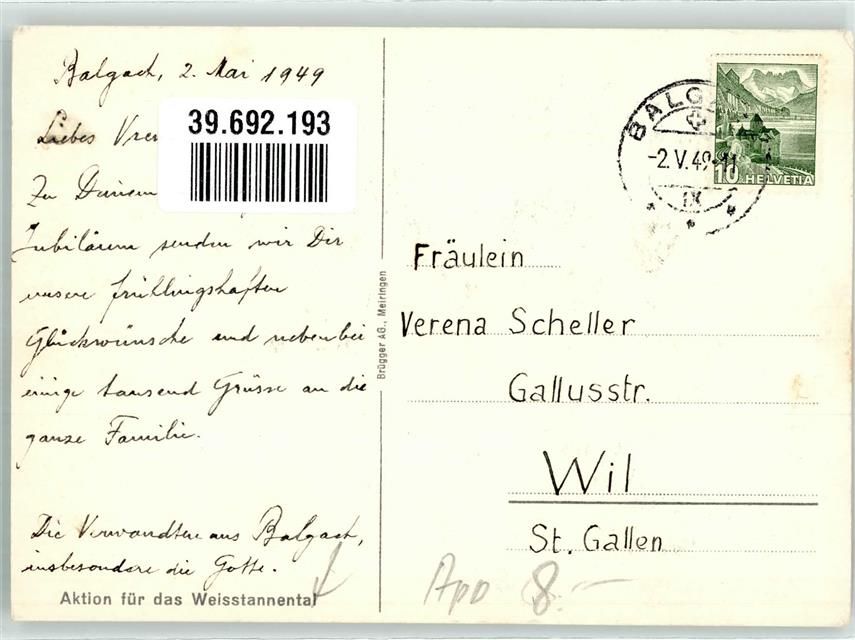 Balgach, 2. Mai 1949
39.692.193
Liebes
Zu Deinem
Jubiläum senden wir Dir
unsere frühlingshaften
Glückwünsche und nebenbei
einige tausend Grüsse an die
ganze Familie.
Die Verwandten aus Balgach,
insbesondere die Gotte.
Aktion für das Weisstannental
Brügger AG., Meiringen
BALG
-2.V.49.-11
IX
10 HELVETIA
Fräulein
Verena Scheller
Gallusstr.
Wil
St. Gallen
App 8.–